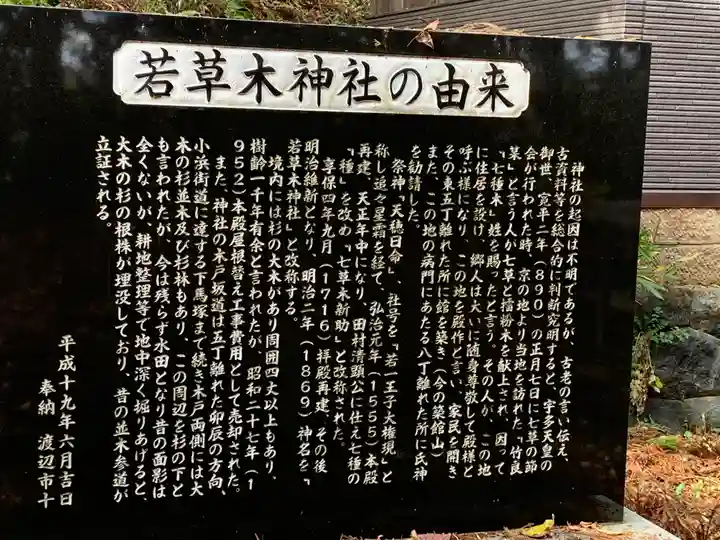 若草木神社の由来
神社の起因は不明であるが、古老の言い伝え、
古資料等を総合的に判断究明すると、宇多天皇の
御世、寛平二年(890)の正月七日に七草の節
会が行われた時、京の地より当地を訪れた『竹良
某』と言う人が七草と擂粉木を献上され、因って
『七種木』姓を賜ったと言う。その人が、この地
に住居を設け、郷人は大いに随身尊敬して殿様と
呼ぶ様になり、この地を殿作と言い、家民を開き
その東五丁離れた所に館を築き(今の築館山)
また、この地の病門にあたる八丁離れた所に氏神
を勧請した。
祭神『天穂日命』、社号を『若一王子大権現』と
称し追々星霜を経て、弘治元年(1555)本殿
再建、天正年中になり、田村清顕公に仕え七種の
『種』を改め『七草木新助』と改称された。
享保四年九月(1716)拝殿再建、その後
明治維新となり、明治二年(1869)神名を『
若草木神社』と改称する。
境内には杉の大木があり周囲四丈以上もあり、
樹齢一千年有余と言われたが、昭和二十七年(1
952)本殿屋根替え工事費用として売却された。
また、神社の木戸坂道は五丁離れた卯辰の方向、
小浜街道に達する下馬塚まで続き木戸両側には大
木の杉並木及び杉林もあり、この周辺を杉の下と
も言われたが、今は残らず水田となり昔の面影は
全くないが、耕地整理等で地中深く堀りあげると、
大木の杉の根株が埋没しており、昔の並木参道が
立証される。
平成十九年六月吉日
奉納 渡辺市十